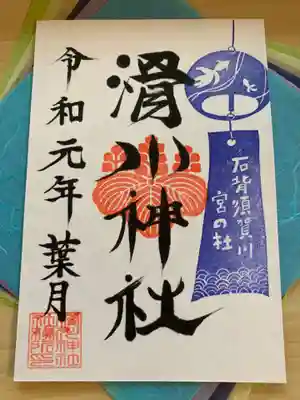 石背須賀川
宮の杜
滑川神社
令和元年 葉月